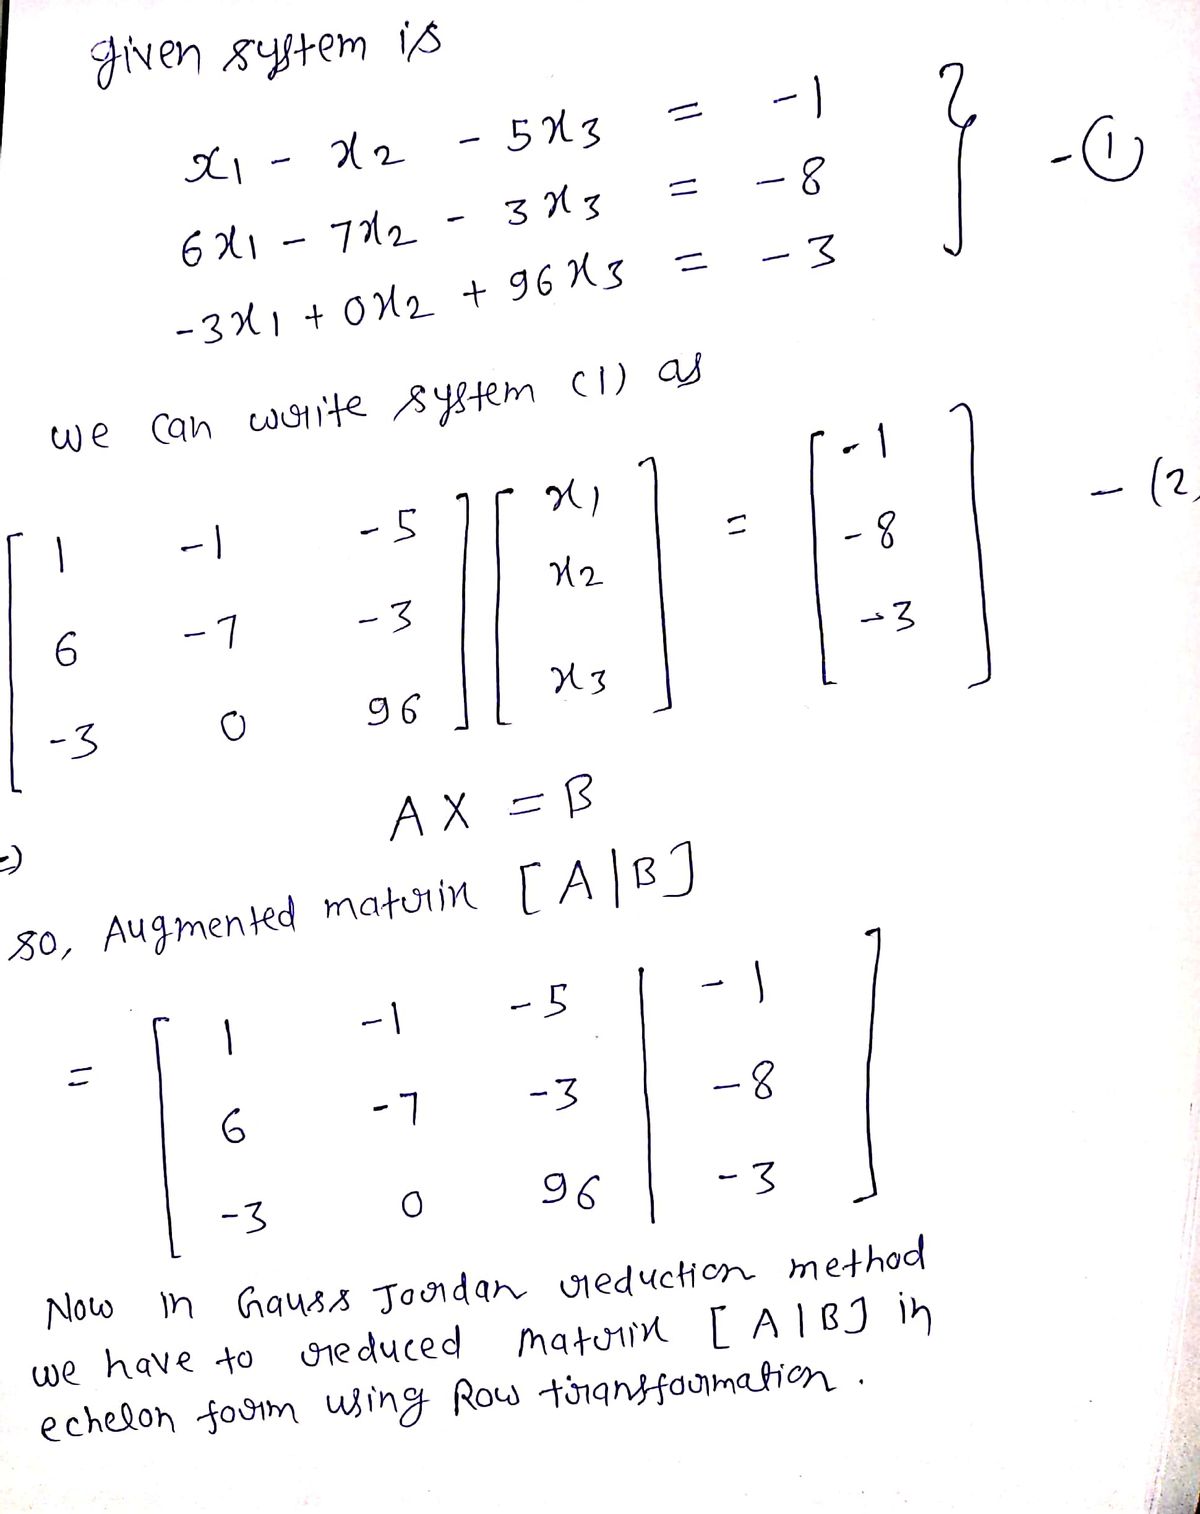 given system is
x1 - x2 - 5x3 = -1
6x1 - 7x2 - 3x3 = -8
-3x1 + 0x2 + 96x3 = -3
} - ①
we can write system (1) as
[ 1 -1 -5 ] [ x1 ] = [ -1 ]
[ 6 -7 -3 ] [ x2 ] = [ -8 ] - (2)
[ -3 0 96 ] [ x3 ] = [ -3 ]
=> AX = B
so, Augmented matrix [A|B]
= [ 1 -1 -5 | -1 ]
[ 6 -7 -3 | -8 ]
[ -3 0 96 | -3 ]
Now in Gauss Jordan reduction method
we have to reduced matrix [A|B] in
echelon form using Row transformation.